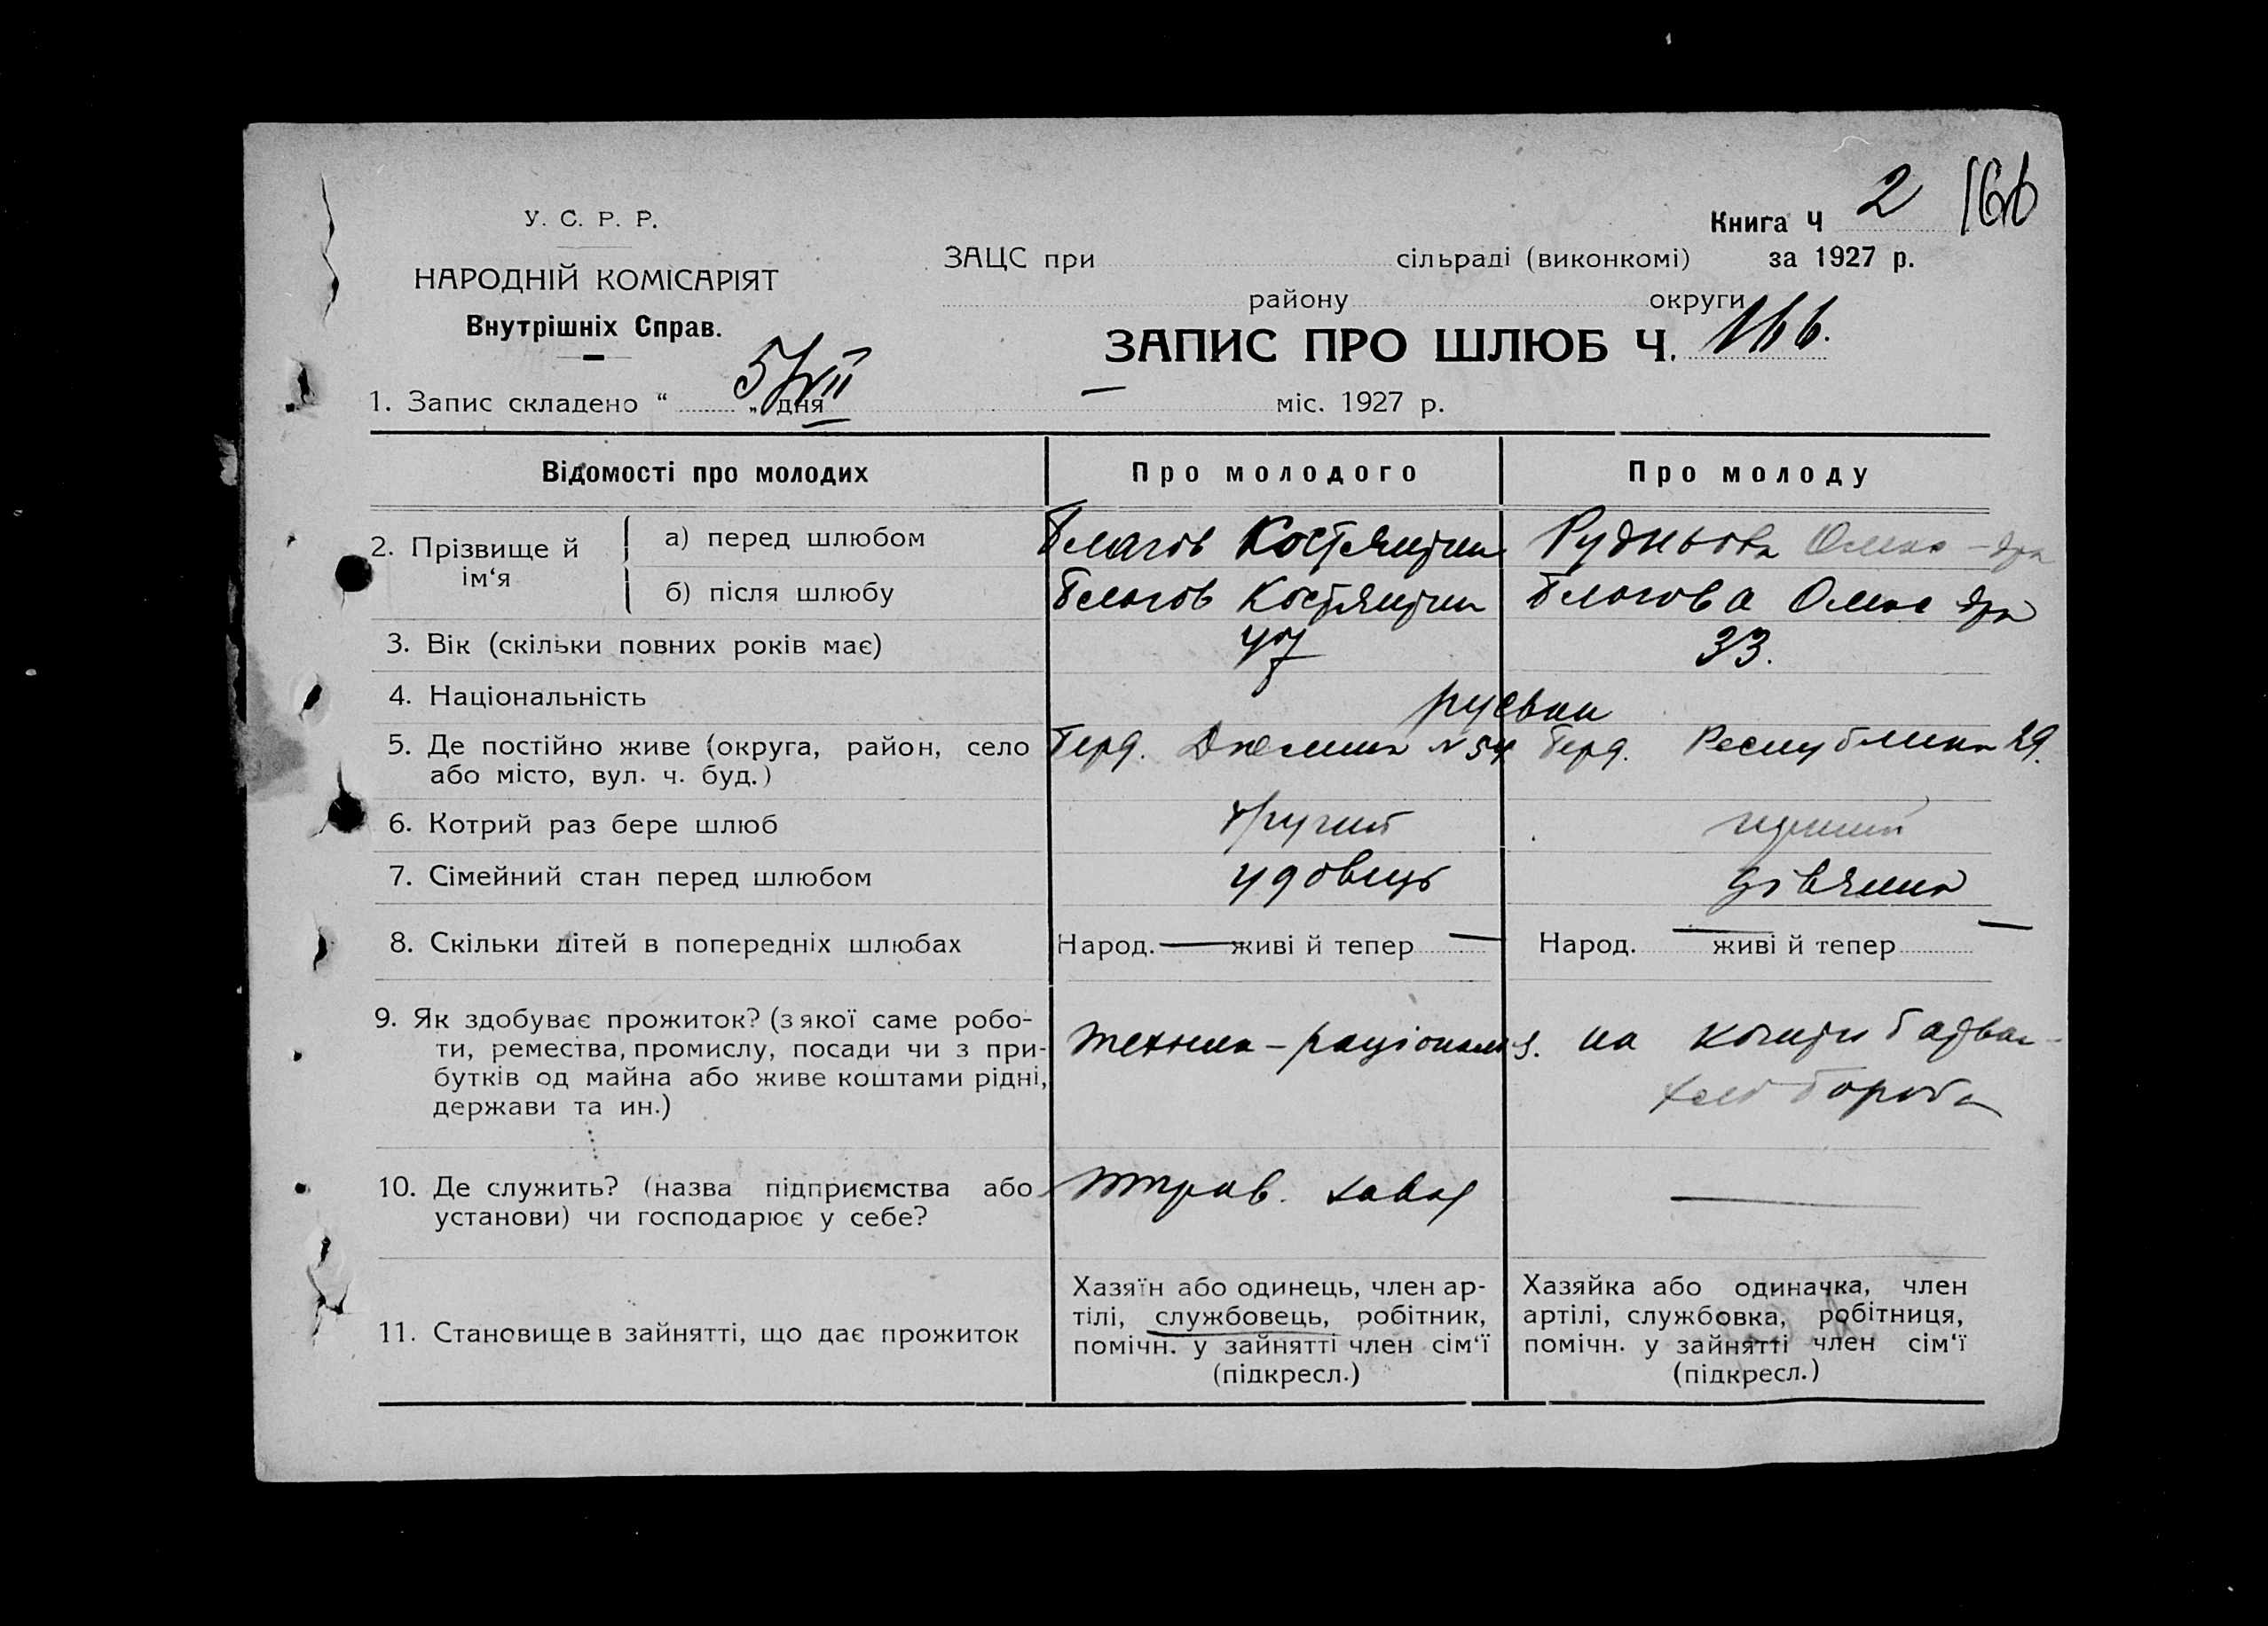 У. С. Р. Р.
НАРОДНІЙ КОМІСАРІЯТ
Внутрішніх Справ.
Книга Ч 2 166
ЗАЦС при сільраді (виконкомі) за 1927 р.
району округи
ЗАПИС ПРО ШЛЮБ Ч. 166.
1. Запис складено “ 5/VII „ дня — міс. 1927 р.
Відомості про молодих Про молодого Про молоду
2. Прізвище й ім‘я
а) перед шлюбом Благов Костянтин Рудньова Олекс-дра
б) після шлюбу Благов Костянтин Благова Олекс дра
3. Вік (скільки повних років має) 47 33.
4. Національність руськи
5. Де постійно живе (округа, район, село Берд. № 54 Берд. Республики 29.
або місто, вул. ч. буд.)
6. Котрий раз бере шлюб другий перший
7. Сімейний стан перед шлюбом удовець дівчина
8. Скільки дітей в попередніх шлюбах Народ. — живі й тепер — Народ. — живі й тепер —
9. Як здобуває прожиток? (з якої саме робо-
ти, ремества, промислу, посади чи з при-
бутків од майна або живе коштами рідні,
держави та ин.)
техник - раціоналіз. на кошти батька -
хлібороба
10. Де служить? (назва підприємства або
установи) чи господарює у себе?
завод —
11. Становище в зайнятті, що дає прожиток
Хазяїн або одинець, член ар-
тілі, службовець, робітник,
помічн. у зайнятті член сім‘ї
(підкресл.)
Хазяйка або одиначка, член
артілі, службовка, робітниця,
помічн. у зайнятті член сім‘ї
(підкресл.)